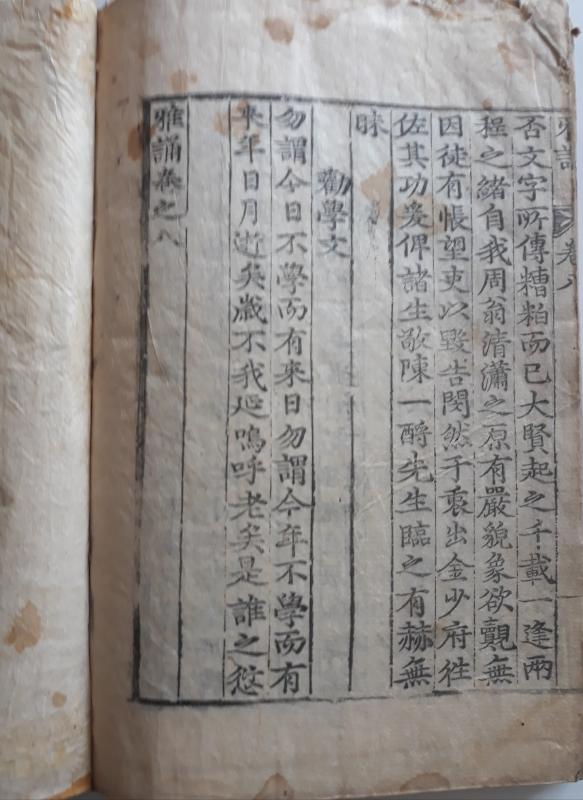 雅誦 卷八
否文字所傳糟粕而已大賢起之千載一逢兩
程之緒自我周翁清瀟之原有嚴貌象欲覿無
因徒有悵望吏以毀告閔然于衷出金少府往
佐其功爰俾諸生敬陳一酹先生臨之有赫無
昧
勸學文
勿謂今日不學而有來日勿謂今年不學而有
來年日月逝矣歲不我延嗚呼老矣是誰之愆
雅誦卷之八